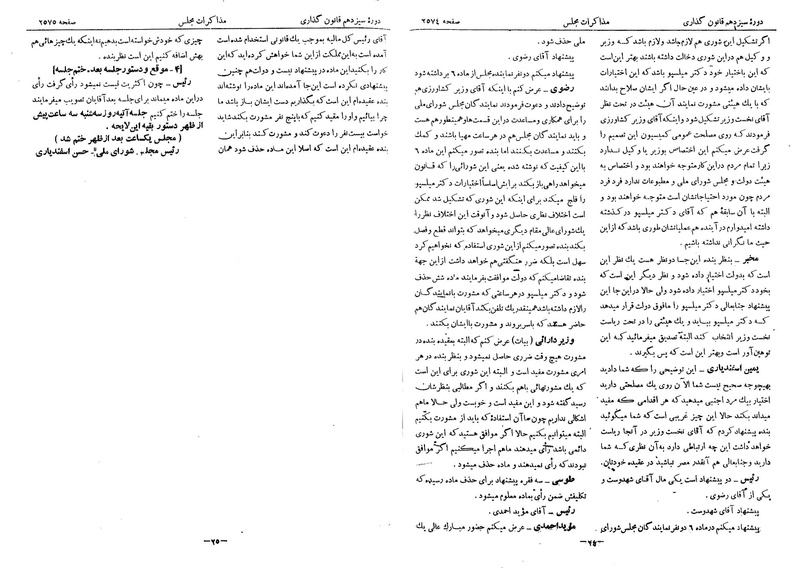 دورهٔ سیزدهم قانون گذاری مذاکرات مجلس صفحه ۲۵۷۴
اگر تشکیل این شوری هم لازم باشد ولازم باشد که وزیر
و وکیل هم دراین شوری دخالت داشته باشند بهتر این است
که این باختیار خود دکتر میلسپو باشد که این اختیارات
بایشان داده میشود و در عین حال اگر ایشان صلاح بدانند
که با یك هیئتی مشورت نمایند آن هیئت در تحت نظر
آقای نخست وزیر تشکیل شود واینکه آقای وزیر کشاورزی
فرمودند که روی مصلحت عمومی کمیسیون این تصمیم را
گرفت عرض میکنم این اختصاص بوزیر یا وکیل ندارد
زیرا تمام مردم دراین کار متوجه خواهند بود و اختصاص به
هیئت دولت و مجلس شورای ملی و مطبوعات ندارد فرد فرد
مردم چون مورد احتیاجاتشان است متوجه خواهند بود و
البته با آن سابقهٔ هم که آقای دکتر میلسپو در گذشته
داشته امیدوارم در آینده هم عملیاتشان طوری باشد که از این
حیث ما نگرانی نداشته باشیم .
مخبر ـ بنظر بنده این جا دو نظر هست یك نظر این
است که بدولت اختیار داده شود و نظر دیگر این است که
بخود دکتر میلسپو اختیار داده شود ولی حالا دراین جا این
پیشنهاد جنابعالی دکتر میلسپو را مافوق دولت قرار میدهد
که دکتر میلسپو بیاید و یك هیئتی را در تحت ریاست
نخست وزیر انتخاب کند البته تصدیق میفرمائید که این
توهین آور است وبهتر این است که پس بگیرند .
یمین اسفندیاری ـ این توضیحی را که شما دادید
بهیچوجه صحیح نیست شما الآن روی یك مصلحتی دارید
اختیار بیك مرد اجنبی میدهید که هر اقدامی که مفید
میداند بکند حالا این چیز غریبی است که شما میگوئید
بنده پیشنهاد کردم که آقای نخست وزیر در آنجا ریاست
خواهد داشت این چه ارتباطی دارد به آن نظری که شما
دارید وجنابعالی هم آنقدر مصر نباشید در عقیده خودتان.
رئیس ـ دو پیشنهاد است یکی مال آقای شهدوست و
یکی از آقای رضوی .
پیشنهاد آقای شهدوست .
پیشنهاد میکنم درماده ۶ دونفر نمایندگان مجلس شورای
ملی حذف شود .
پیشنهاد آقای رضوی .
پیشنهاد میکنم دو نفر نماینده مجلس از ماده ۶ برداشته شود
رضوی ـ عرض کنم با اینکه آقای وزیر کشاورزی هم
توضیح دادند و دعوت فرمودند نمایندگان مجلس شورای ملی
را برای همکاری و مساعدت در این قسمت ها و همینطور هم هست
و باید نمایندگان مجلس هم در هر ساعت مهیا باشند و کمك
و مساعدت بکنند اما بنده تصور میکنم این ماده ۶
با این کیفیت که نوشته شده یعنی این شورائی را که قانون
میخواهد راهی باز بکند برایش اساساً اختیارات دکتر میلسپو
را فلج میکند برای اینکه این شوری که تشکیل شد ممکن
است اختلاف نظری حاصل شود و آنوقت این اختلاف نظر را
یك شورای عالی مقام دیگری میخواهد که بتواند قطع وفصل
بکند بنده تصور میکنم از این شوری استفاده که نخواهیم کرد
سهل است بلکه ضرر هنگفتی هم خواهد داشت از این جهة
بنده تقاضا میکنم که دولت موافقت بفرمایند ماده شش حذف
شود و دکتر میلسپو در هر ساعتی که مشورت با نمایندگان
را لازم داشته باشد همینقدر یك تلفن بکند آقایان نمایندگان هم
حاضر هستند که با سر بروند و مشورت با ایشان بکنند .
وزیر دارائی (بیات) عرض کنم که البته بعقیده بنده در
مشورت هیچ وقت ضرری حاصل نمیشود و بنظر بنده در هر
امری مشورت مفید است و البته این شوری برای این است
که یك مشورتهائی باهم بکنند و اگر مطالبی بنظرشان
رسید گفته شود و این مفید است و خوبست ولی حالا ماهم
اشکالی نداریم چون ما آن استفادهٔ که باید از مشورت بکنیم
البته میتوانیم بکنیم حالا اگر موافق هستید که این شوری
دائمی باشد رأی میدهند ماهم اجرا میکنیم اگر موافق
نبودند که رأی نمیدهند و ماده حذف میشود .
طوسی ـ سه فقره پیشنهاد برای حذف ماده رسیده که
تکلیفش ضمن رأی بماده معلوم میشود .
رئیس ـ آقای مؤید احمدی .
مؤید احمدی ـ عرض میکنم حضور مبارك عالی یك
ـ ۲٤ ـ
دورهٔ سیزدهم قانون گذاری مذاکرات مجلس صفحه ۲۵۷۵
آقای رئیس کل مالیه بموجب یك قانونی استخدام شده است
آمده است به این مملکت از این شما خواهش کرده اید که این
کار را بکنید این ماده در پیشنهاد نیست و دولت هم چنین
پیشنهادی نکرده است این جا آمده اند این ماده را نوشته اند
بنده عقیده ام این است که بگذاریم دست ایشان باز باشد ما
چرا بیائیم و او را مقید کنیم که با پنج نفر مشورت بکند شاید
خواست بیست نفر را دعوت کند و مشورت کند بنابراین
بنده عقیده ام این است که اصلا این ماده حذف شود همان
چیزی که خودش خواسته است بدهیم نه اینکه یك چیزهائی هم
بهش اضافه کنیم این است نظر بنده .
[۴ ـ موقع و دستور جلسه بعد ـ ختم جلسه]
رئیس ـ چون اکثریت نیست نمیشود رأی گرفت رأی
در این ماده میماند برای جلسه بعد آقایان تصویب میفرمایند
جلسه را ختم کنیم جلسه آتیه روز سه شنبه سه ساعت پیش
از ظهر دستور بقیه این لایحه .
( مجلس یکساعت بعد از ظهر ختم شد )
رئیس مجلس شورای ملی ـ حسن اسفندیاری
ـ ۲۵ ـ